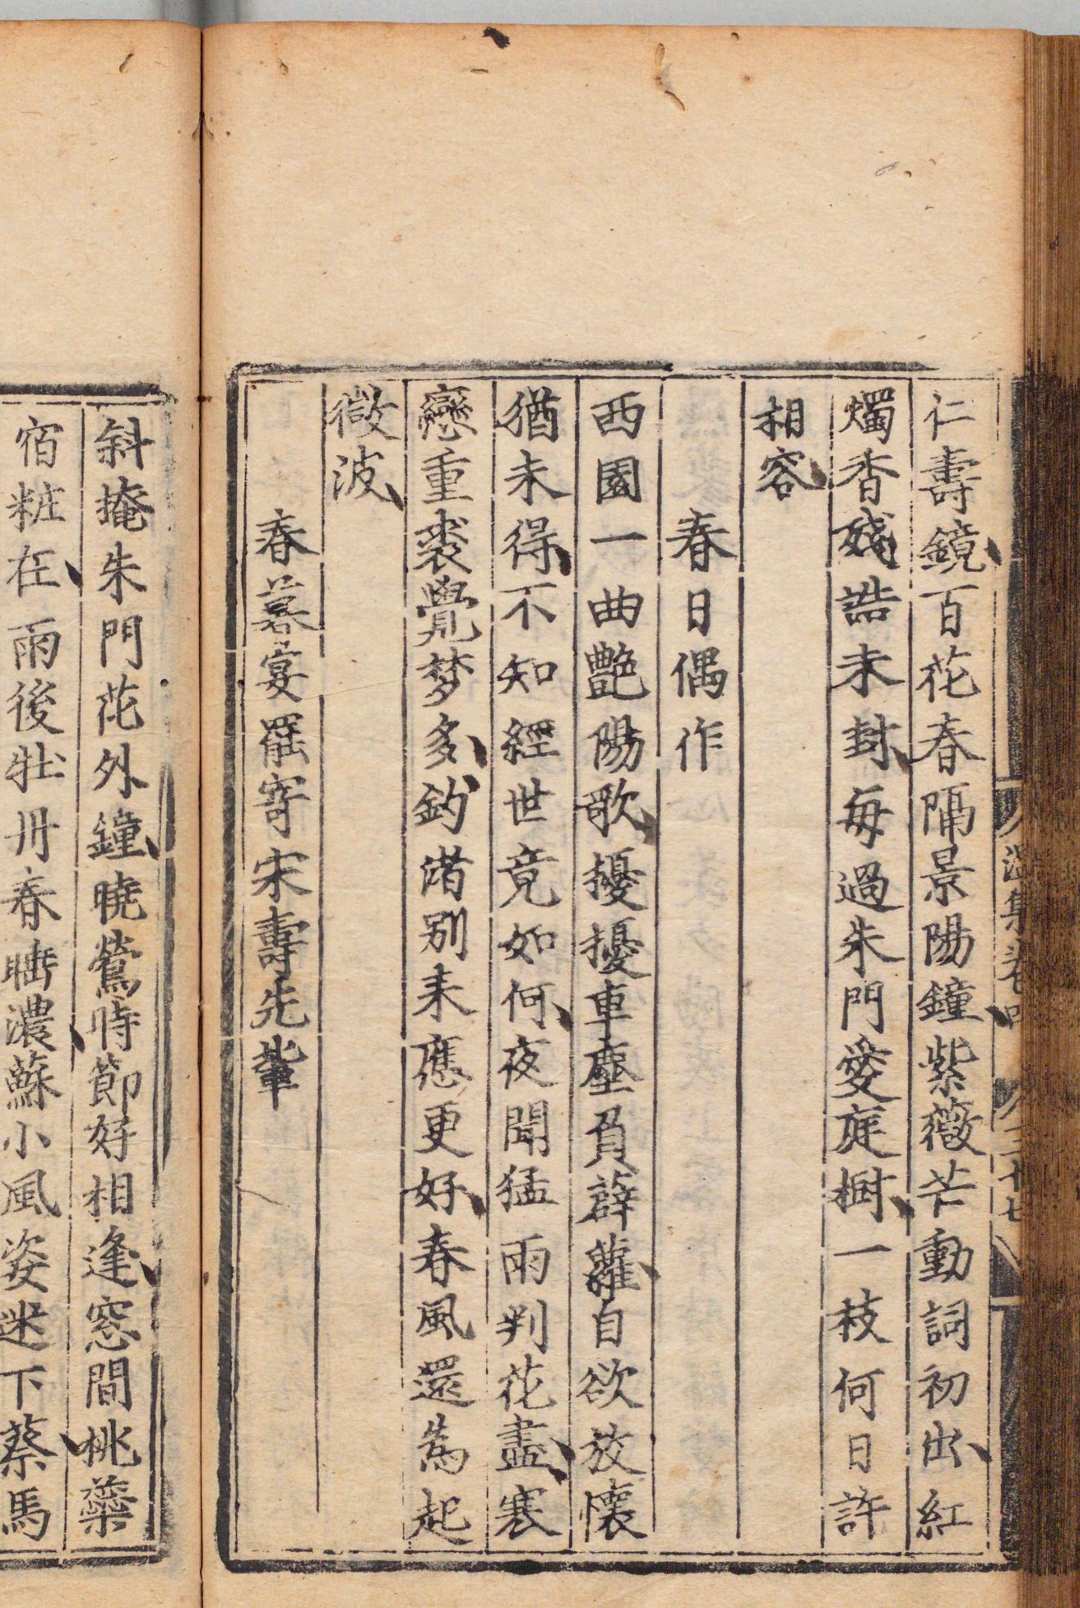 仁壽鏡百花春隔景陽鐘紫薇芒動詞初出紅
燭香殘誥未封每過朱門愛庭樹一枝何日許
相容
春日偶作
西園一曲艷陽歌擾擾車塵負薜蘿自欲放懷
猶未得不知經世竟如何夜聞猛雨判花盡寒
戀重裘覺梦多釣渚別来應更好春風還為起
微波
春暮宴罷寄宋壽先輩
斜掩朱門花外鐘曉鶯時節好相逢窓間桃蘂
宿粧在雨後牡丹春睡濃蘇小風姿迷下蔡馬
温集卷四
二十七